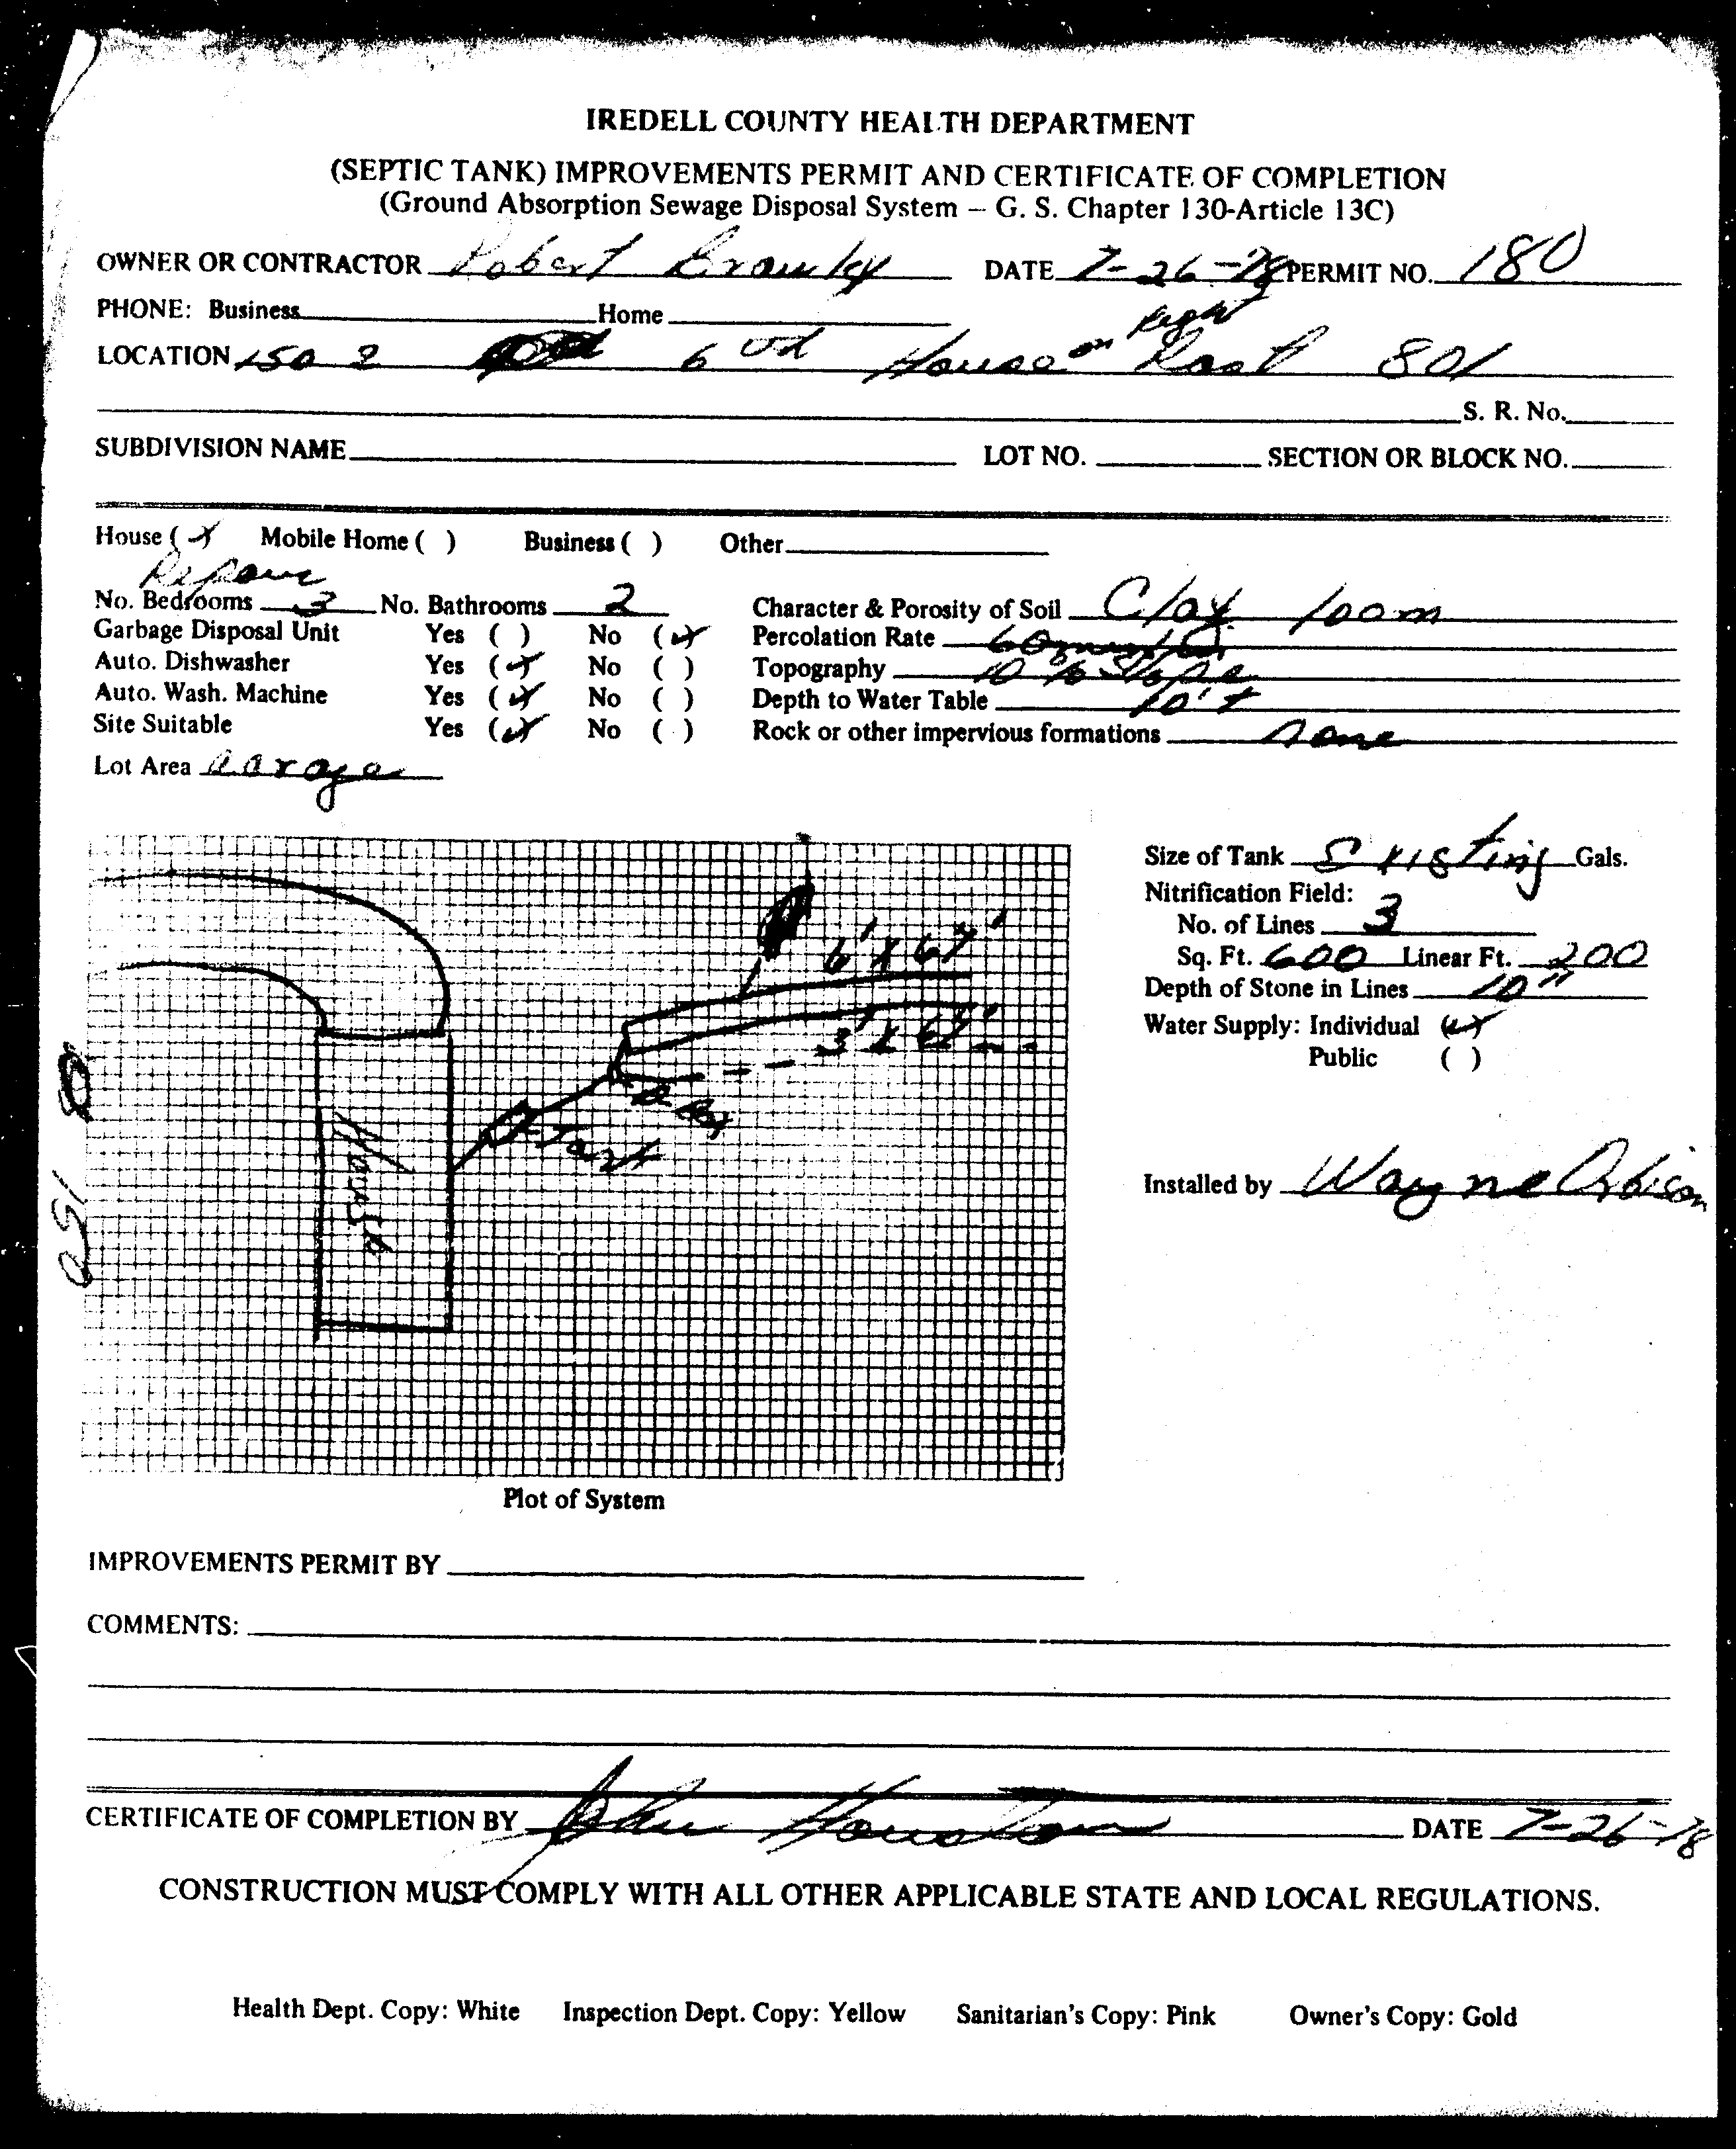 IREDELL COUNTY HEALTH DEPARTMENT
(SEPTIC TANK) IMPROVEMENTS PERMIT AND CERTIFICATE OF COMPLETION
(Ground Absorption Sewage Disposal System – G. S. Chapter 130-Article 13C)
OWNER OR CONTRACTOR Robert Brawley DATE 7-26-78 PERMIT NO. 180
PHONE: Business Home
Right
LOCATION 150 House on Past 801
S. R. No.
SUBDIVISION NAME LOT NO. SECTION OR BLOCK NO.
House (x) Mobile Home ( ) Business ( ) Other
Repair
No. Bedrooms 3 No. Bathrooms 2 Character & Porosity of Soil Clay loam
Garbage Disposal Unit Yes ( ) No (✓) Percolation Rate 60
Auto. Dishwasher Yes (✓) No ( ) Topography 10 % Slope
Auto. Wash. Machine Yes (✓) No ( ) Depth to Water Table 10'+
Site Suitable Yes (✓) No ( ) Rock or other impervious formations none
Lot Area acrage
Size of Tank Existing Gals.
Nitrification Field:
No. of Lines 3
6' x 67'
Sq. Ft. 600 Linear Ft. 200
Depth of Stone in Lines 10"
3' x 67'
Water Supply: Individual (✓)
Public ( )
D Box
Tank
House
150
Installed by Wayne Orbison
Plot of System
IMPROVEMENTS PERMIT BY
COMMENTS:
CERTIFICATE OF COMPLETION BY John Houston DATE 7-26-78
CONSTRUCTION MUST COMPLY WITH ALL OTHER APPLICABLE STATE AND LOCAL REGULATIONS.
Health Dept. Copy: White Inspection Dept. Copy: Yellow Sanitarian's Copy: Pink Owner's Copy: Gold